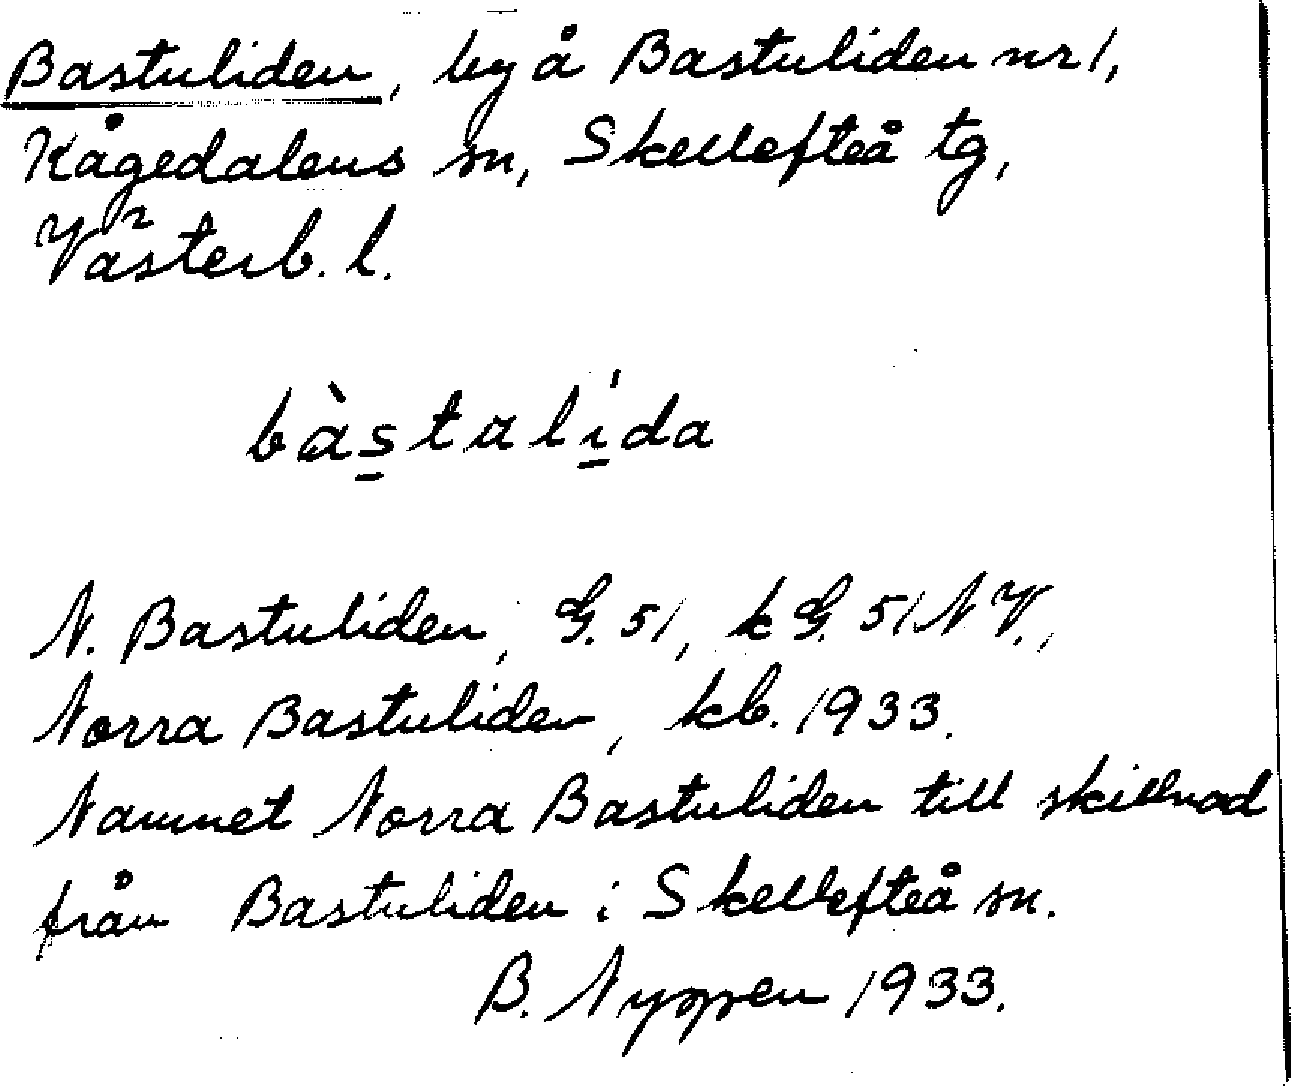 Bastuliden, by å Bastuliden nr 1,
Kågedalens sn, Skellefteå tg,
Västerb. l.
bàstalída
N. Bastuliden, G. 51, kG. 51 NV.,
Norra Bastuliden, kb. 1933.
Namnet Norra Bastuliden till skillnad
från Bastuliden i Skellefteå sn.
B. Nyppen 1933.